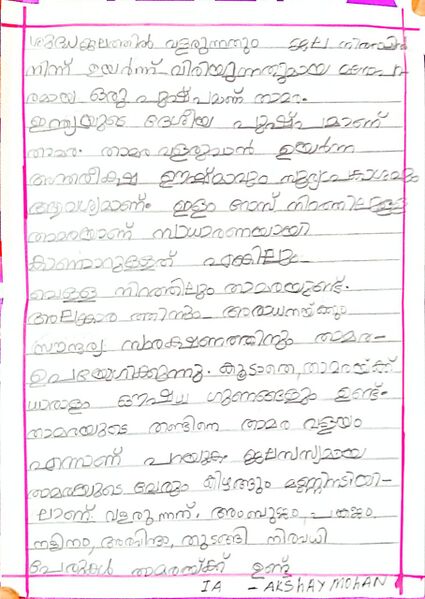 ശുദ്ധജലത്തിൽ വളരുന്നതും ജല നിരപ്പിൽ
നിന്ന് ഉയർന്ന് വിരിയുന്നതുമായ മനോഹ
രമായ ഒരു പുഷ്പമാണ് താമര.
ഇന്ത്യയുടെ ദേശീയ പുഷ്പമാണ്
താമര. താമര വളരുവാൻ ഉയർന്ന
അന്തരീക്ഷ ഊഷ്മാവും സൂര്യപ്രകാശവും
ആവശ്യമാണ്. ഇളം റോസ് നിറത്തിലുള്ള
താമരയാണ് സാധാരണയായി
കാണാറുള്ളത് എങ്കിലും
വെള്ള നിറത്തിലും താമരയുണ്ട്.
അലങ്കാരത്തിനും ആരാധനയ്ക്കും
സൗന്ദര്യ സംരക്ഷണത്തിനും താമര
ഉപയോഗിക്കുന്നു. കൂടാതെ, താമരയ്ക്ക്
ധാരാളം ഔഷധ ഗുണങ്ങളും ഉണ്ട്.
താമരയുടെ തണ്ടിനെ താമര വളയം
എന്നാണ് പറയുക. ജലസസ്യമായ
താമരയുടെ വേരും കിഴങ്ങും മണ്ണിനടിയി-
ലാണ് വളരുന്നത്. അംബുജം, പങ്കജം,
നളിനം, അരവിന്ദം, തുടങ്ങി നിരവധി
പേരുകൾ താമരയ്ക്ക് ഉണ്ട്
IA - AKSHAY MOHAN